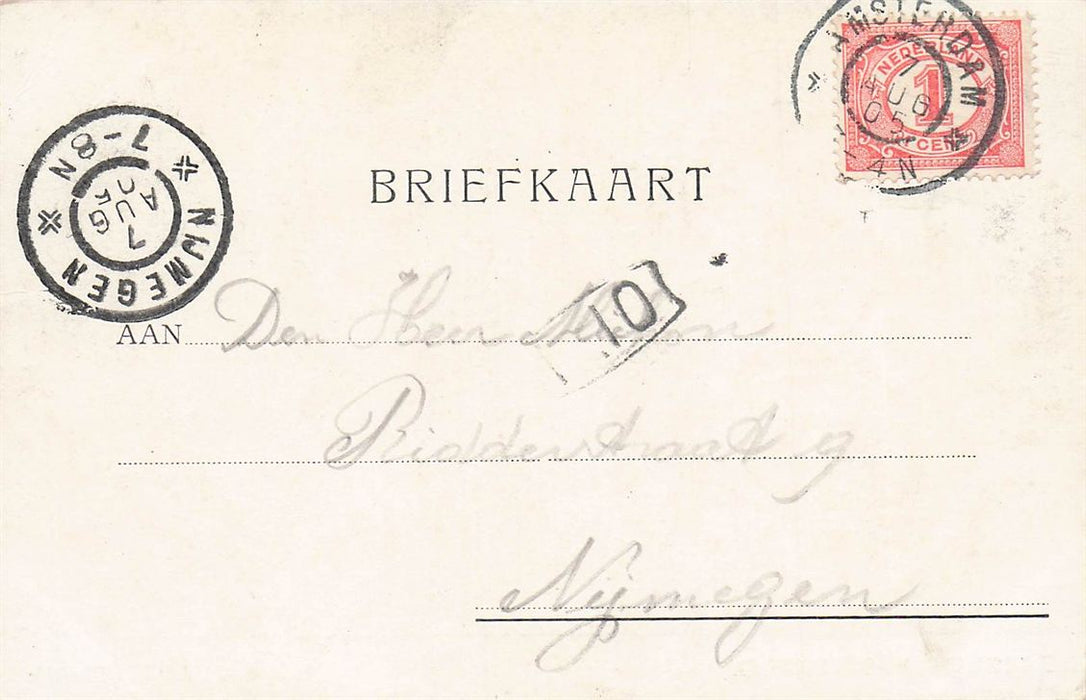 AMSTERDAM
7
AUG
05
4 N
NEDERLAND
1
CENT
7-8N
7
AUG
05
NIJMEGEN
BRIEFKAART
10
AAN Den Heer
Ridderstraat 9
Nijmegen